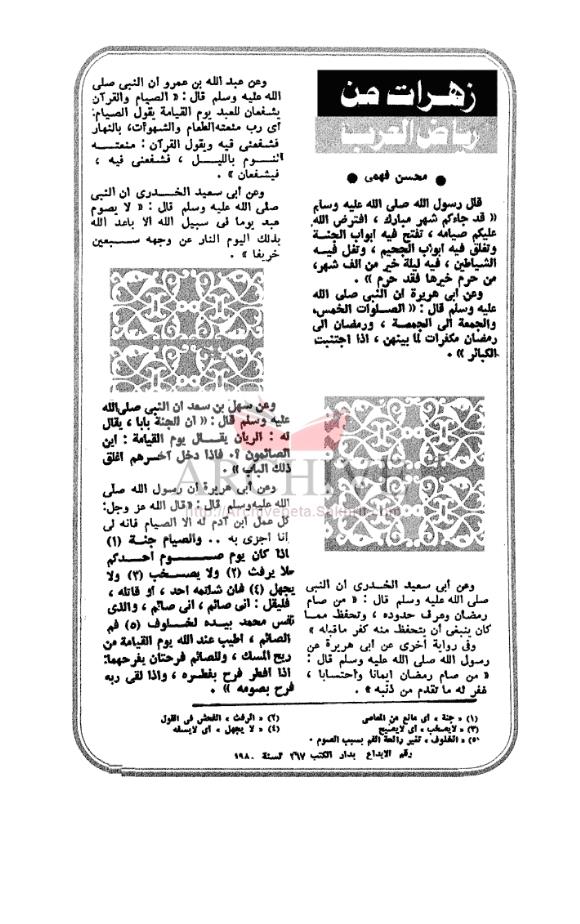 زهرات من
رياض العرب
● محسن فهمى ●
قال رسول الله صلى الله عليه وسلم
« قد جاءكم شهر مبارك ، افترض الله
عليكم صيامه ، تفتح فيه ابواب الجنة
وتغلق فيه ابواب الجحيم ، وتغل فيه
الشياطين ، فيه ليلة خير من الف شهر،
من حرم خيرها فقد حرم » .
وعن ابى هريرة ان النبى صلى الله
عليه وسلم قال : « الصلوات الخمس،
والجمعة الى الجمعة ، ورمضان الى
رمضان مكفرات لما بينهن ، اذا اجتنبت
الكبائر » .
وعن أبى سعيد الخدرى ان النبى
صلى الله عليه وسلم قال : « من صام
رمضان وعرف حدوده ، وتحفظ مما
كان ينبغى أن يتحفظ منه كفر ماقبله »
وفى رواية أخرى عن ابى هريرة عن
رسول الله صلى الله عليه وسلم قال :
« من صام رمضان ايمانا واحتسابا ،
غفر له ما تقدم من ذنبه » .
وعن عبد الله بن عمرو ان النبى صلى
الله عليه وسلم قال : « الصيام والقرآن
يشفعان للعبد يوم القيامة يقول الصيام:
اى رب منعته الطعام والشهوات، بالنهار
فشفعنى فيه ويقول القرآن : منعته
النوم بالليل ، فشفعنى فيه ،
فيشفعان »
وعن أبى سعيد الخدرى ان النبى
صلى الله عليه وسلم قال : « لا يصوم
عبد يوما فى سبيل الله الا باعد الله
بذلك اليوم النار عن وجهه سبعين
خريفا » .
وعن سهل بن سعد ان النبى صلى الله
عليه وسلم قال : « ان للجنة بابا ، يقال
له : الريان يقال يوم القيامة : اين
الصائمون ؟، فاذا دخل آخرهم اغلق
ذلك الباب » .
وعن أبى هريرة أن رسول الله صلى
الله عليه وسلم قال : «قال الله عز وجل:
كل عمل ابن آدم له الا الصيام فانه لى
وانا اجزى به .. والصيام جنة (١)
فاذا كان يوم صوم أحدكم
فلا يرفث (٢) ولا يصخب (٣) ولا
يجهل (٤) فان شاتمه احد ، أو قاتله ،
فليقل : انى صائم ، انى صائم ، والذى
نفس محمد بيده لخلوف (٥) فم
الصائم ، أطيب عند الله يوم القيامة من
ريح المسك ، وللصائم فرحتان يفرحهما:
اذا أفطر فرح بفطره ، واذا لقى ربه
فرح بصومه » .
(١) « جنة » أى مانع من المعاصى
(٢) « الرفث » الفحش فى القول
(٣) « لايصخب » أى لايصيح
(٤) « لا يجهل » أى لايسفه
(٥) « الخلوف » تغير رائحة الفم بسبب الصوم .
رقم الايداع بدار الكتب ٢٦٧ لسنة ١٩٨٠
ARCHIVE
http://Archivebeta.Sakhrit.com